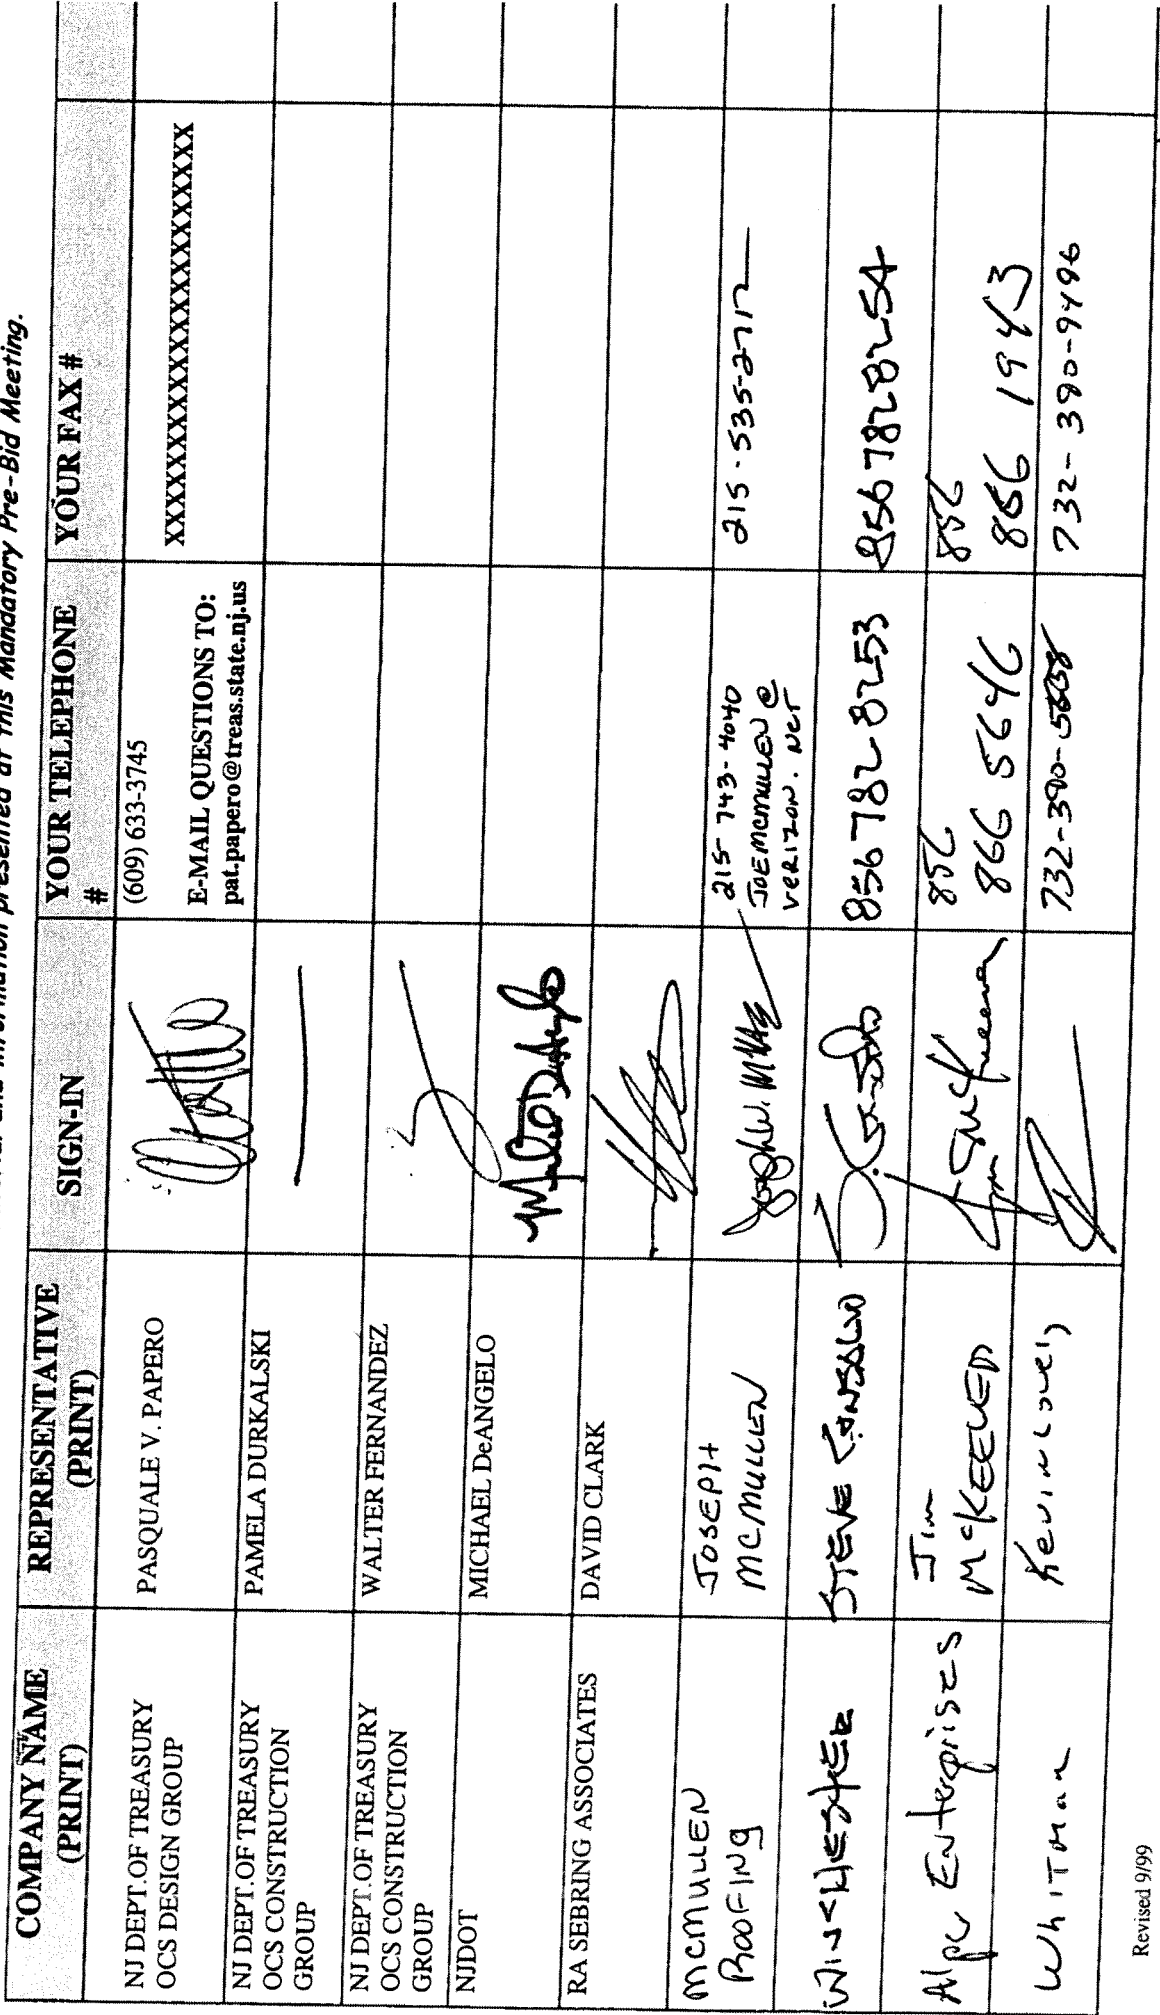 information presented at this Mandatory Pre-Bid Meeting.
COMPANY NAME (PRINT) REPRESENTATIVE (PRINT) SIGN-IN YOUR TELEPHONE # YOUR FAX #
NJ DEPT.OF TREASURY
OCS DESIGN GROUP
PASQUALE V. PAPERO
(609) 633-3745
E-MAIL QUESTIONS TO:
pat.papero@treas.state.nj.us
XXXXXXXXXXXXXXXXXXXXXXXXXX
NJ DEPT.OF TREASURY
OCS CONSTRUCTION
GROUP
PAMELA DURKALSKI
NJ DEPT.OF TREASURY
OCS CONSTRUCTION
GROUP
WALTER FERNANDEZ
NJDOT
MICHAEL DeANGELO
RA SEBRING ASSOCIATES
DAVID CLARK
MCMULLEN
ROOFING
JOSEPH
MCMULLEN
215-743-4040
JOEMCMULLEN@
VERIZON.NET
215-535-2712
WINCHESTER
STEVE CONSALVO
856 782 8253
856 782 8254
Alpc Enterprises
Jim
McKEEVER
856
866 5646
856
866 1943
WHITMAN
Kevin Lovely
732-390-5858
732-390-9496
Revised 9/99